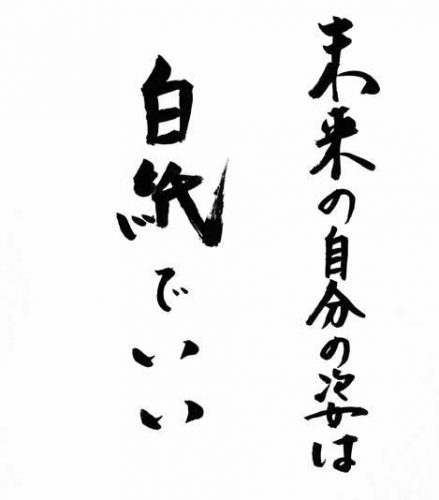 未来の自分の姿は
白紙でいい